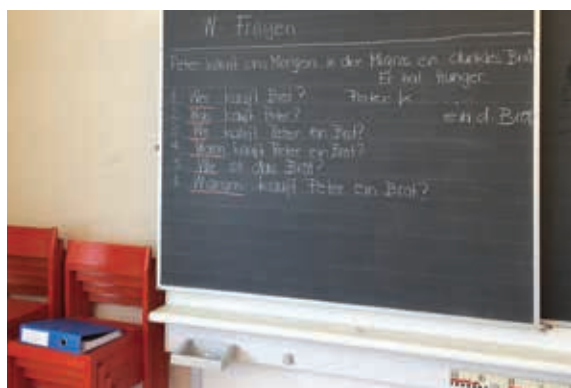 W-Fragen
Peter kauft am Morgen in der Migros ein dunkles Brot.
Er hat Hunger.
1. Wer kauft Brot? Peter
2. Was kauft Peter? ein d. Brot
3. Wo kauft Peter ein Brot?
4. Wann kauft Peter ein Brot?
5. Wie ist das Brot?
6. Warum kauft Peter ein Brot?